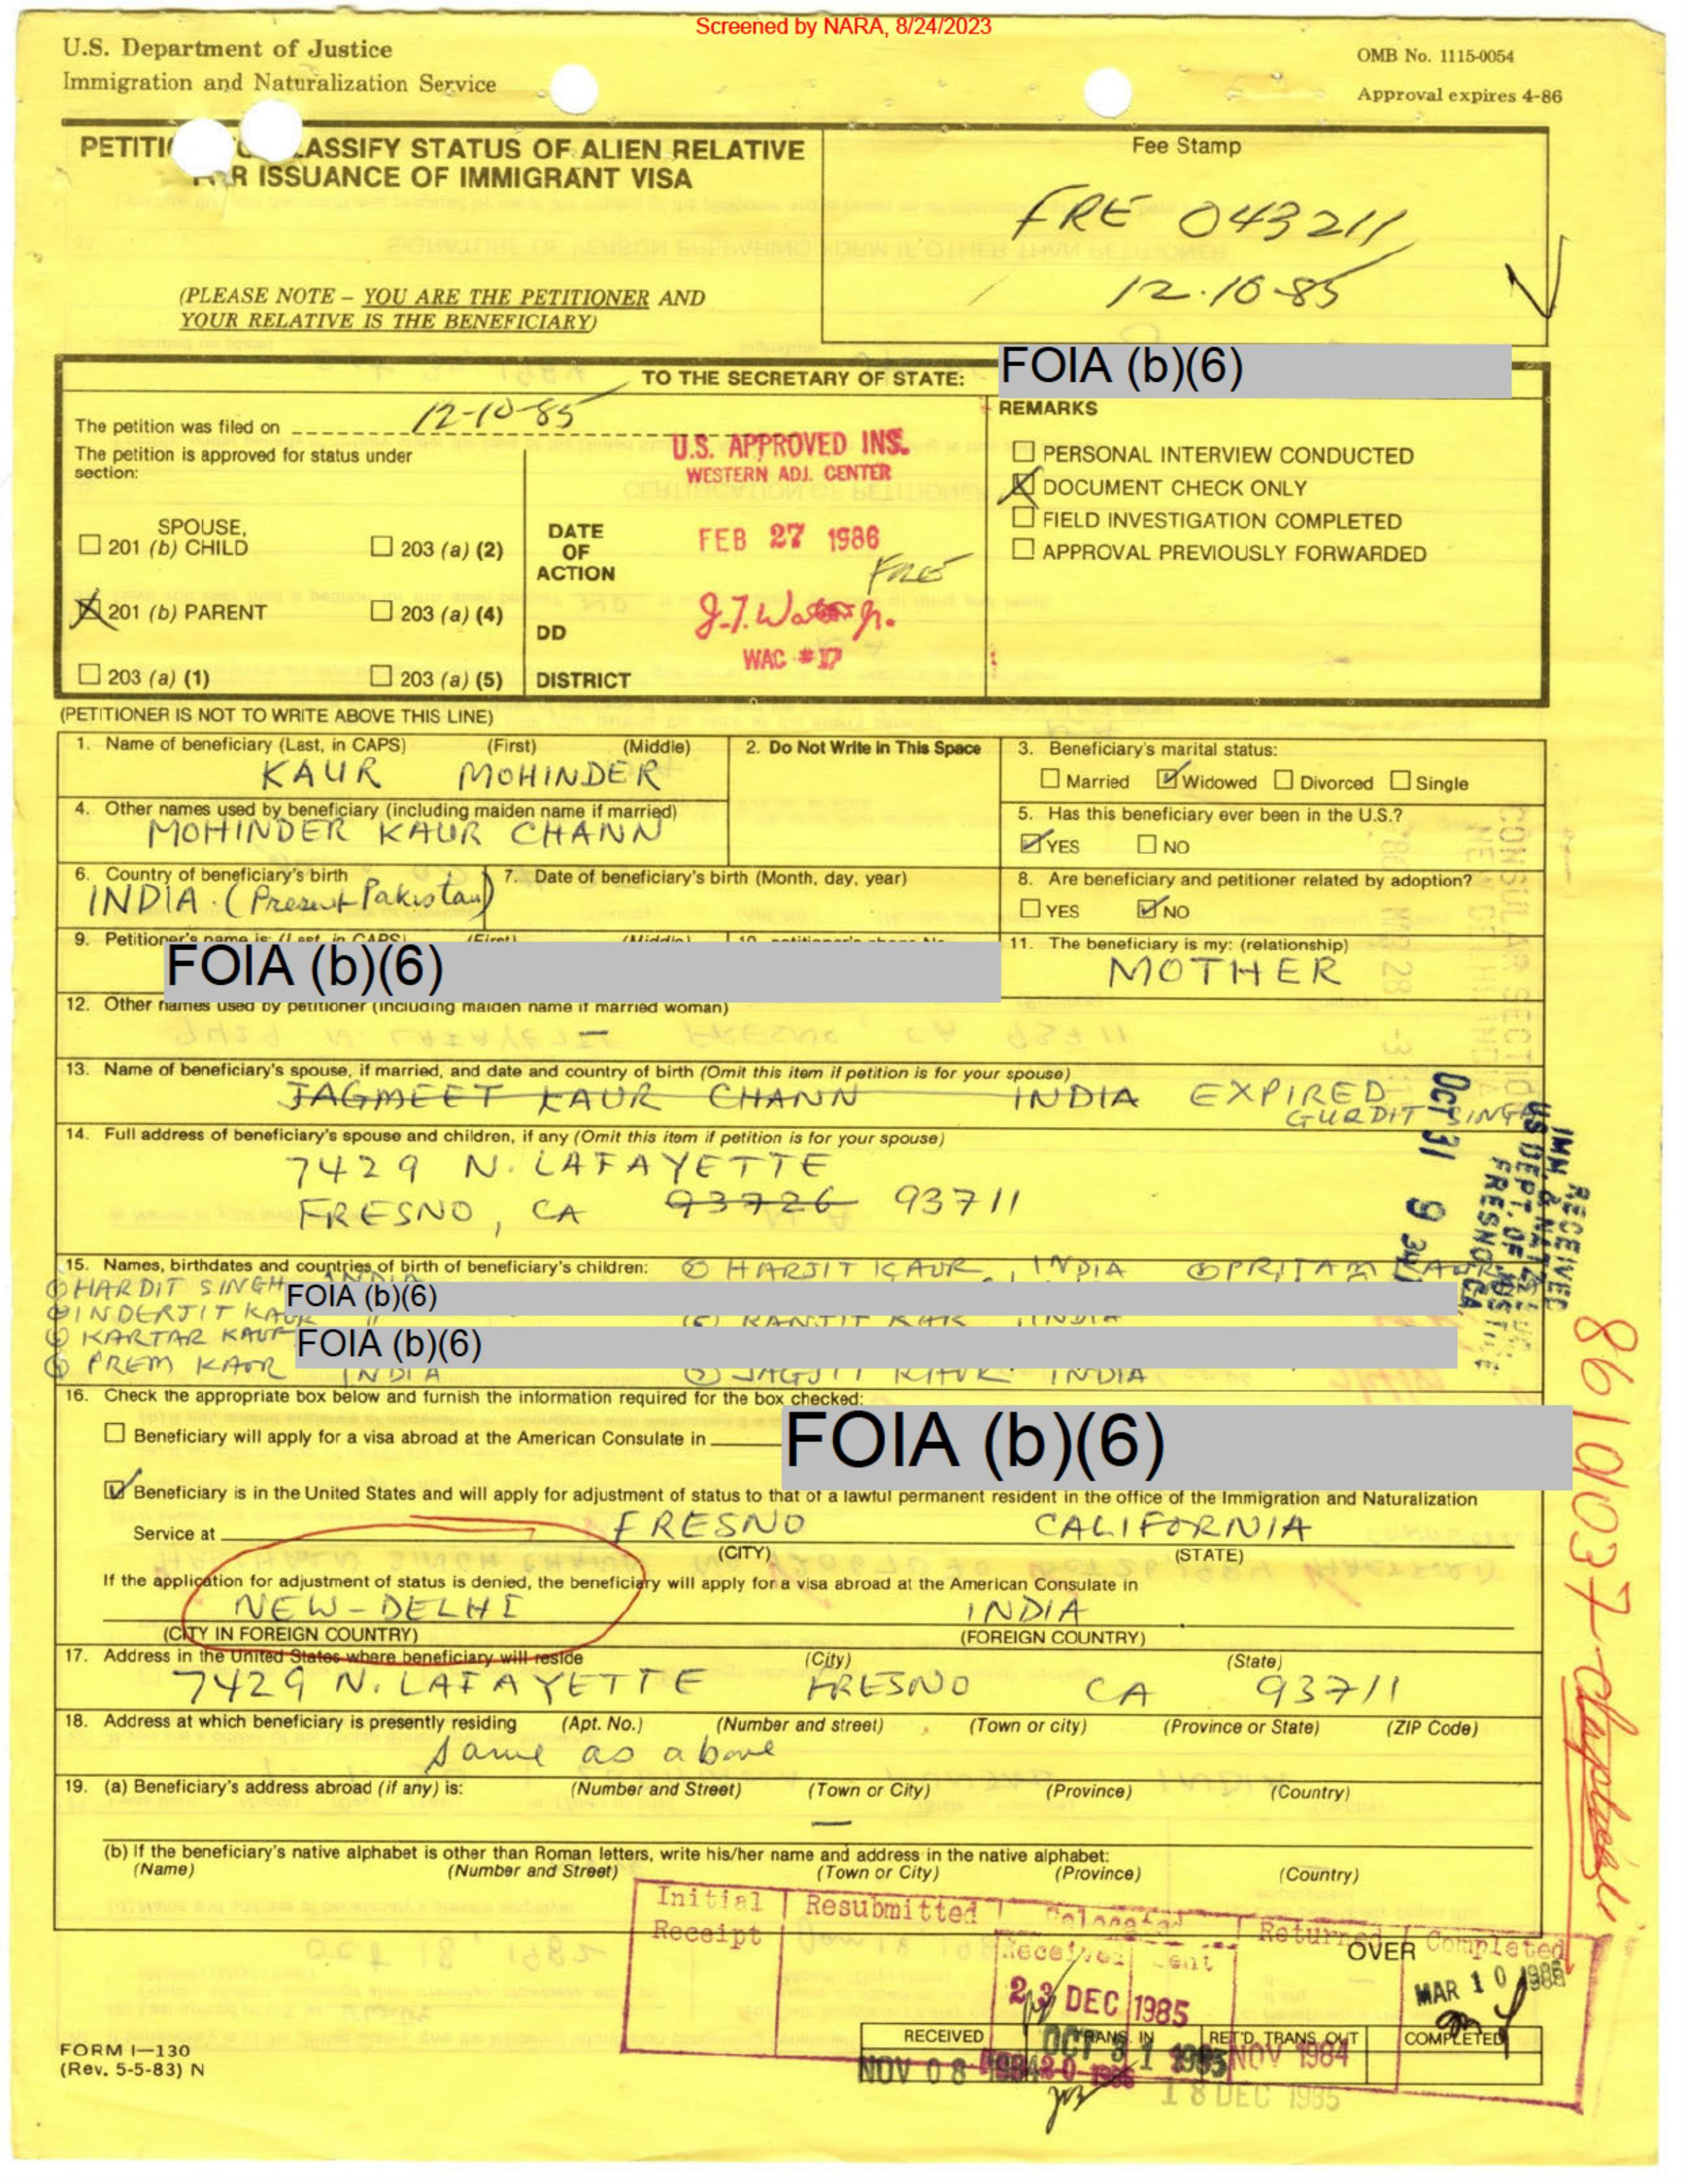 Screened by NARA, 8/24/2023
U.S. Department of Justice
Immigration and Naturalization Service
OMB No. 1115-0054
Approval expires 4-86
PETITI ASSIFY STATUS OF ALIEN RELATIVE
R ISSUANCE OF IMMIGRANT VISA
(PLEASE NOTE – YOU ARE THE PETITIONER AND
YOUR RELATIVE IS THE BENEFICIARY)
Fee Stamp
FRE 043211
12-10-85
TO THE SECRETARY OF STATE:
FOIA (b)(6)
The petition was filed on 12-10-85
The petition is approved for status under
section:
SPOUSE,
201 (b) CHILD
203 (a) (2)
201 (b) PARENT
203 (a) (4)
203 (a) (1)
203 (a) (5)
U.S. APPROVED INS.
WESTERN ADJ. CENTER
DATE
OF
ACTION
FEB 27 1986
FRE
DD
WAC #17
DISTRICT
REMARKS
PERSONAL INTERVIEW CONDUCTED
DOCUMENT CHECK ONLY
FIELD INVESTIGATION COMPLETED
APPROVAL PREVIOUSLY FORWARDED
(PETITIONER IS NOT TO WRITE ABOVE THIS LINE)
1. Name of beneficiary (Last, in CAPS) (First) (Middle)
KAUR MOHINDER
2. Do Not Write In This Space
3. Beneficiary's marital status:
Married Widowed Divorced Single
4. Other names used by beneficiary (including maiden name if married)
MOHINDER KAUR CHANN
5. Has this beneficiary ever been in the U.S.?
YES NO
6. Country of beneficiary's birth
INDIA. (Present Pakistan)
7. Date of beneficiary's birth (Month, day, year)
8. Are beneficiary and petitioner related by adoption?
YES NO
9. Petitioner's name is: (Last, in CAPS) (First) (Middle)
FOIA (b)(6)
11. The beneficiary is my: (relationship)
MOTHER
12. Other names used by petitioner (including maiden name if married woman)
—
13. Name of beneficiary's spouse, if married, and date and country of birth (Omit this item if petition is for your spouse)
JAGMEET KAUR CHANN INDIA EXPIRED
GURDIT SINGH
14. Full address of beneficiary's spouse and children, if any (Omit this item if petition is for your spouse)
7429 N. LAFAYETTE
FRESNO, CA 93726 93711
RECEIVED
IMM. & NATZ
US DEPT. OF JUSTICE
FRESNO, CA
OCT 31 9
15. Names, birthdates and countries of birth of beneficiary's children: HARJIT KAUR, INDIA PRITAM KAUR
HARDIT SINGH INDIA
FOIA (b)(6)
INDERJIT KAUR
KARTAR KAUR
FOIA (b)(6)
PREM KAUR INDIA JAGJIT KAUR INDIA
16. Check the appropriate box below and furnish the information required for the box checked:
Beneficiary will apply for a visa abroad at the American Consulate in
FOIA (b)(6)
Beneficiary is in the United States and will apply for adjustment of status to that of a lawful permanent resident in the office of the Immigration and Naturalization
Service at FRESNO CALIFORNIA
(CITY) (STATE)
If the application for adjustment of status is denied, the beneficiary will apply for a visa abroad at the American Consulate in
NEW-DELHI INDIA
(CITY IN FOREIGN COUNTRY) (FOREIGN COUNTRY)
17. Address in the United States where beneficiary will reside (City) (State)
7429 N. LAFAYETTE FRESNO CA 93711
18. Address at which beneficiary is presently residing (Apt. No.) (Number and street) (Town or city) (Province or State) (ZIP Code)
same as above
19. (a) Beneficiary's address abroad (if any) is: (Number and Street) (Town or City) (Province) (Country)
—
(b) If the beneficiary's native alphabet is other than Roman letters, write his/her name and address in the native alphabet:
(Name) (Number and Street) (Town or City) (Province) (Country)
Initial Receipt
Resubmitted
Relocated
Received Sent
Returned
Completed
OVER
23 DEC 1985
MAR 10 1986
RECEIVED TRANS. IN RET'D. TRANS. OUT COMPLETED
NOV 08 OCT 31 1985 NOV 1984
18 DEC 1985
FORM I—130
(Rev. 5-5-83) N